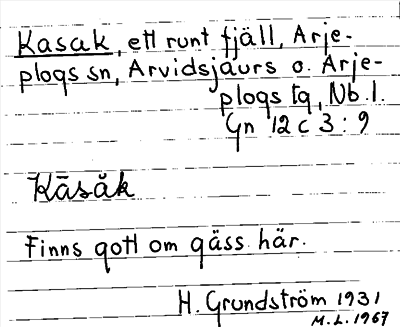 Kasak, ett runt fjäll, Arje-
plogs sn, Arvidsjaurs o. Arje-
plogs tg, Nb. l.
Gn 12 c 3 : 9
Kāsăk
Finns gott om gäss här.
H. Grundström 1931
M.L. 1967